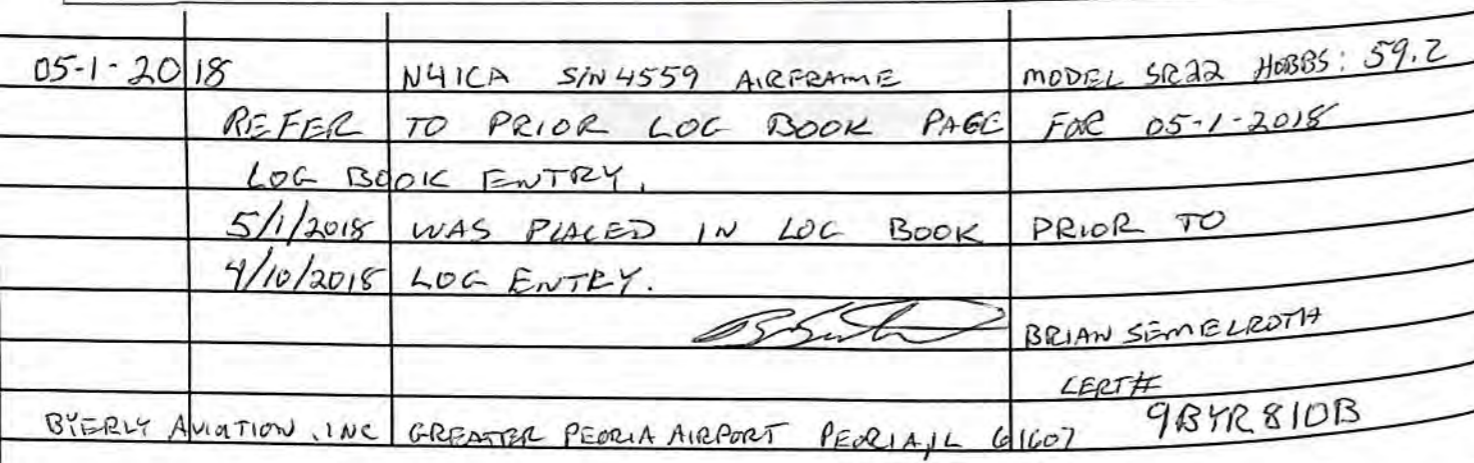 05-1-2018 N41CA S/N 4559 AIRFRAME MODEL SR22 HOBBS: 59.2
REFER TO PRIOR LOG BOOK PAGE FOR 05-1-2018
LOG BOOK ENTRY.
5/1/2018 WAS PLACED IN LOG BOOK PRIOR TO
4/10/2018 LOG ENTRY.
BRIAN SEMELROTH
CERT#
9BYR810B
BYERLY AVIATION, INC GREATER PEORIA AIRPORT PEORIA, IL 61607